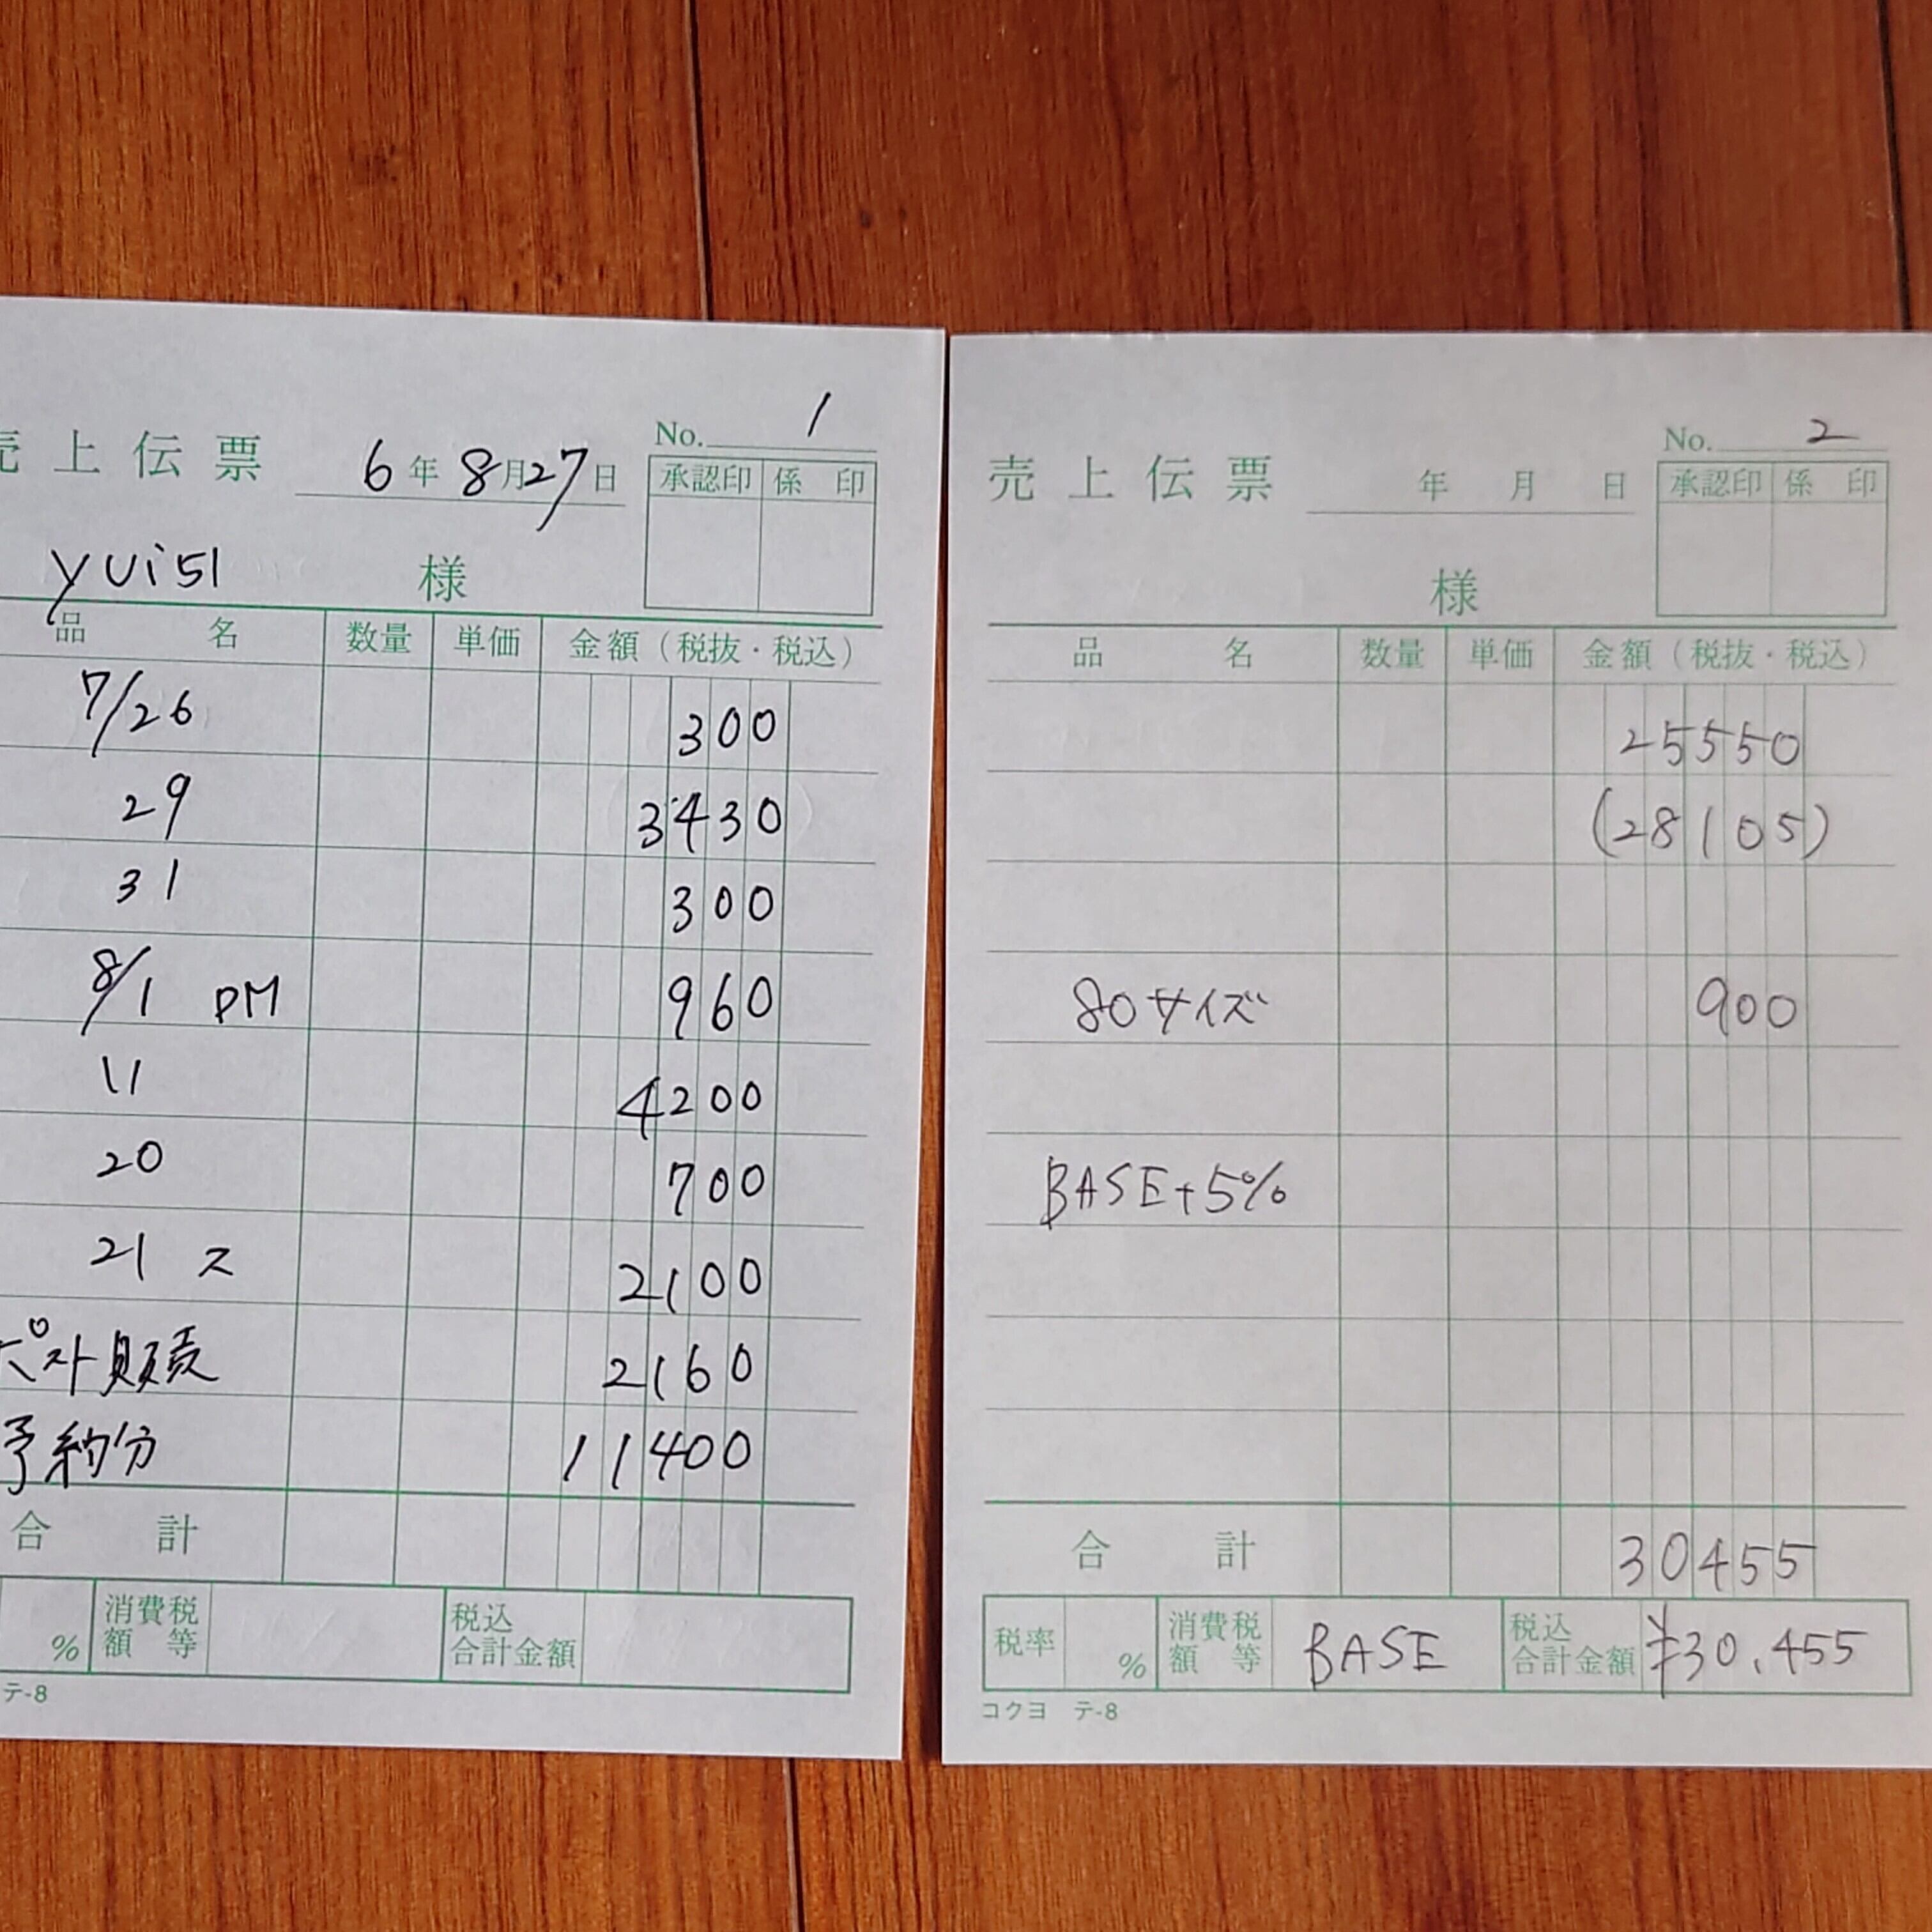 売上伝票 6年8月27日 No. 1
承認印 係印
yui51 様
品名 数量 単価 金額(税抜・税込)
7/26 300
29 3430
31 300
8/1 PM 960
11 4200
20 700
21 ス 2100
ポスト販売 2160
予約分 11400
合計
% 消費税額等 税込合計金額
テ-8
売上伝票 年 月 日 No. 2
承認印 係印
様
品名 数量 単価 金額(税抜・税込)
25550
(28105)
80サイズ 900
BASE+5%
合計 30455
税率 % 消費税額等 BASE 税込合計金額 ¥30.455
コクヨ テ-8